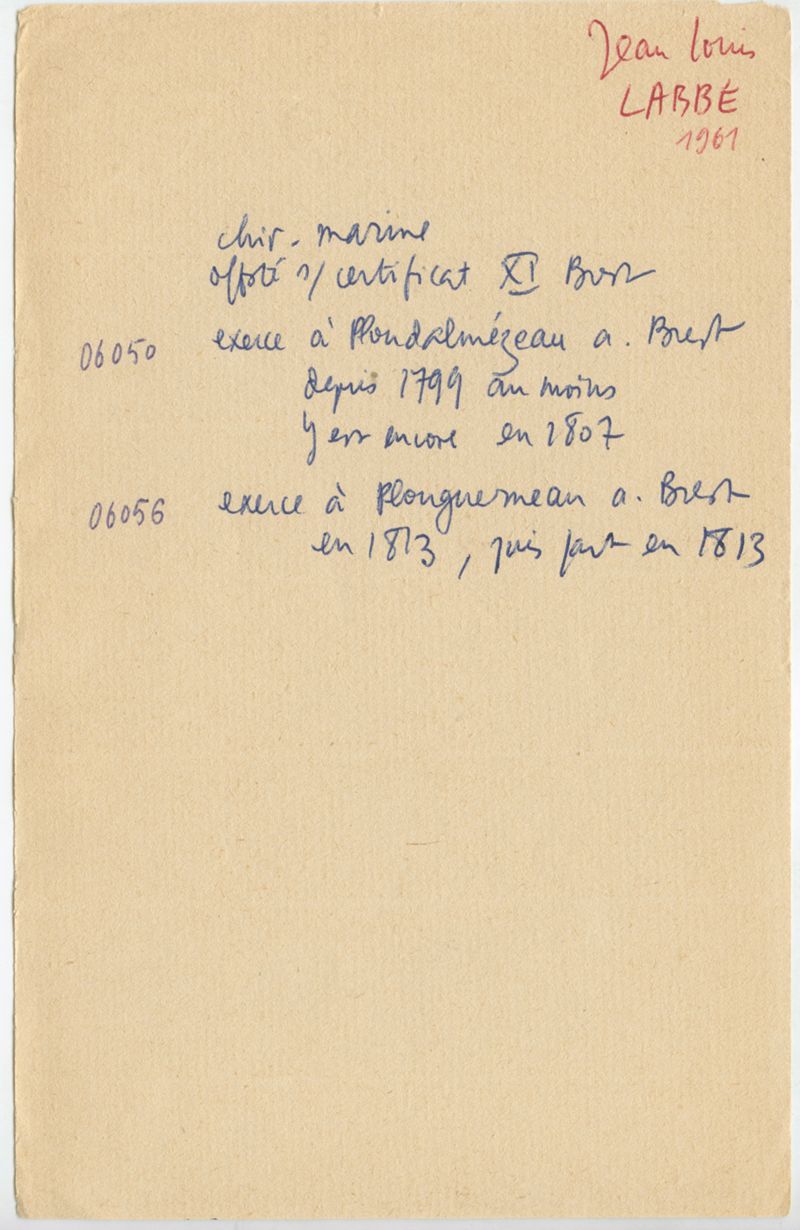 Jean Louis
LABBÉ
1961
chir. marine
s/ certificat XI Brest
06050 exerce à Ploudalmézeau a. Brest
depuis 1799 au moins
y est encore en 1807
06056 exerce à Plouguerneau a. Brest
en 1813, puis part en 1813